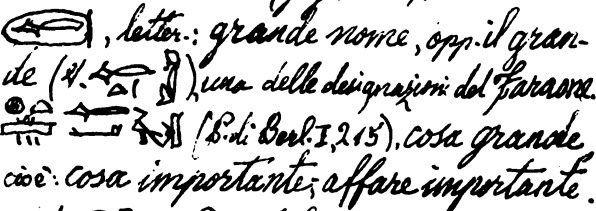 , letter.: grande nome, opp. il gran-
de (V. ), una delle designazioni del Faraone.
(P. di Berl. I, 215), cosa grande
cioè: cosa importante; affare importante.